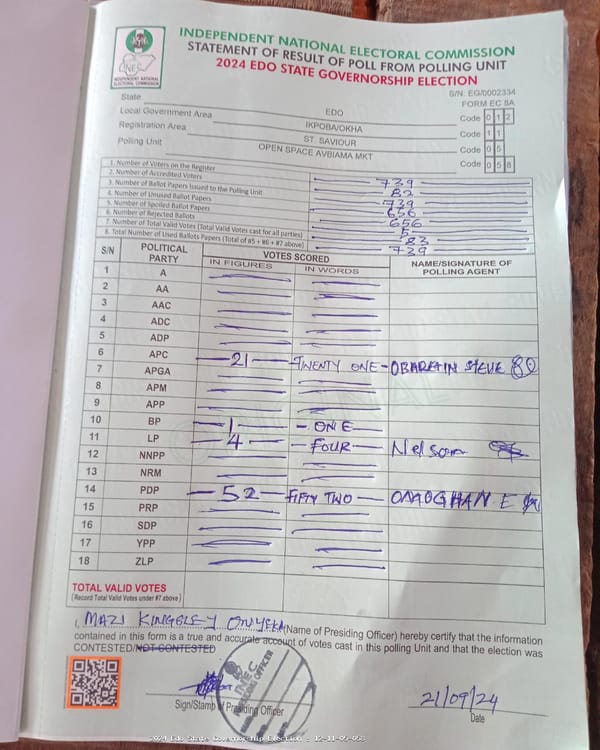 INEC
INDEPENDENT NATIONAL ELECTORAL COMMISSION
INDEPENDENT NATIONAL ELECTORAL COMMISSION
STATEMENT OF RESULT OF POLL FROM POLLING UNIT
2024 EDO STATE GOVERNORSHIP ELECTION
S/N: EG/0002334
FORM EC 8A
State EDO Code 0 1 2
Local Government Area IKPOBA/OKHA Code 1 1
Registration Area ST. SAVIOUR Code 0 5
Polling Unit OPEN SPACE AVBIAMA MKT Code 0 5 8
1. Number of Voters on the Register 739
2. Number of Accredited Voters 82
3. Number of Ballot Papers Issued to the Polling Unit 739
4. Number of Unused Ballot Papers 656
5. Number of Spoiled Ballot Papers 656
6. Number of Rejected Ballots 5
7. Number of Total Valid Votes (Total Valid Votes cast for all parties) 83
8. Total Number of Used Ballots Papers (Total of #5 + #6 + #7 above) 739
S/N POLITICAL PARTY VOTES SCORED NAME/SIGNATURE OF POLLING AGENT
IN FIGURES IN WORDS
1 A
2 AA
3 AAC
4 ADC
5 ADP
6 APC 21 TWENTY ONE OBARETIN STEVE
7 APGA
8 APM
9 APP
10 BP 1 ONE
11 LP 4 FOUR Nelson
12 NNPP
13 NRM
14 PDP 52 FIFTY TWO OMOGHAN E
15 PRP
16 SDP
17 YPP
18 ZLP
TOTAL VALID VOTES
(Record Total Valid Votes under #7 above)
I, MAZI KINGSLEY ONYEKA (Name of Presiding Officer) hereby certify that the information
contained in this form is a true and accurate account of votes cast in this polling Unit and that the election was
CONTESTED/NOT CONTESTED
INEC
PRESIDING OFFICER
21/09/24
Sign/Stamp of Presiding Officer Date
2024 Edo State Governorship Election : 12-11-05-058